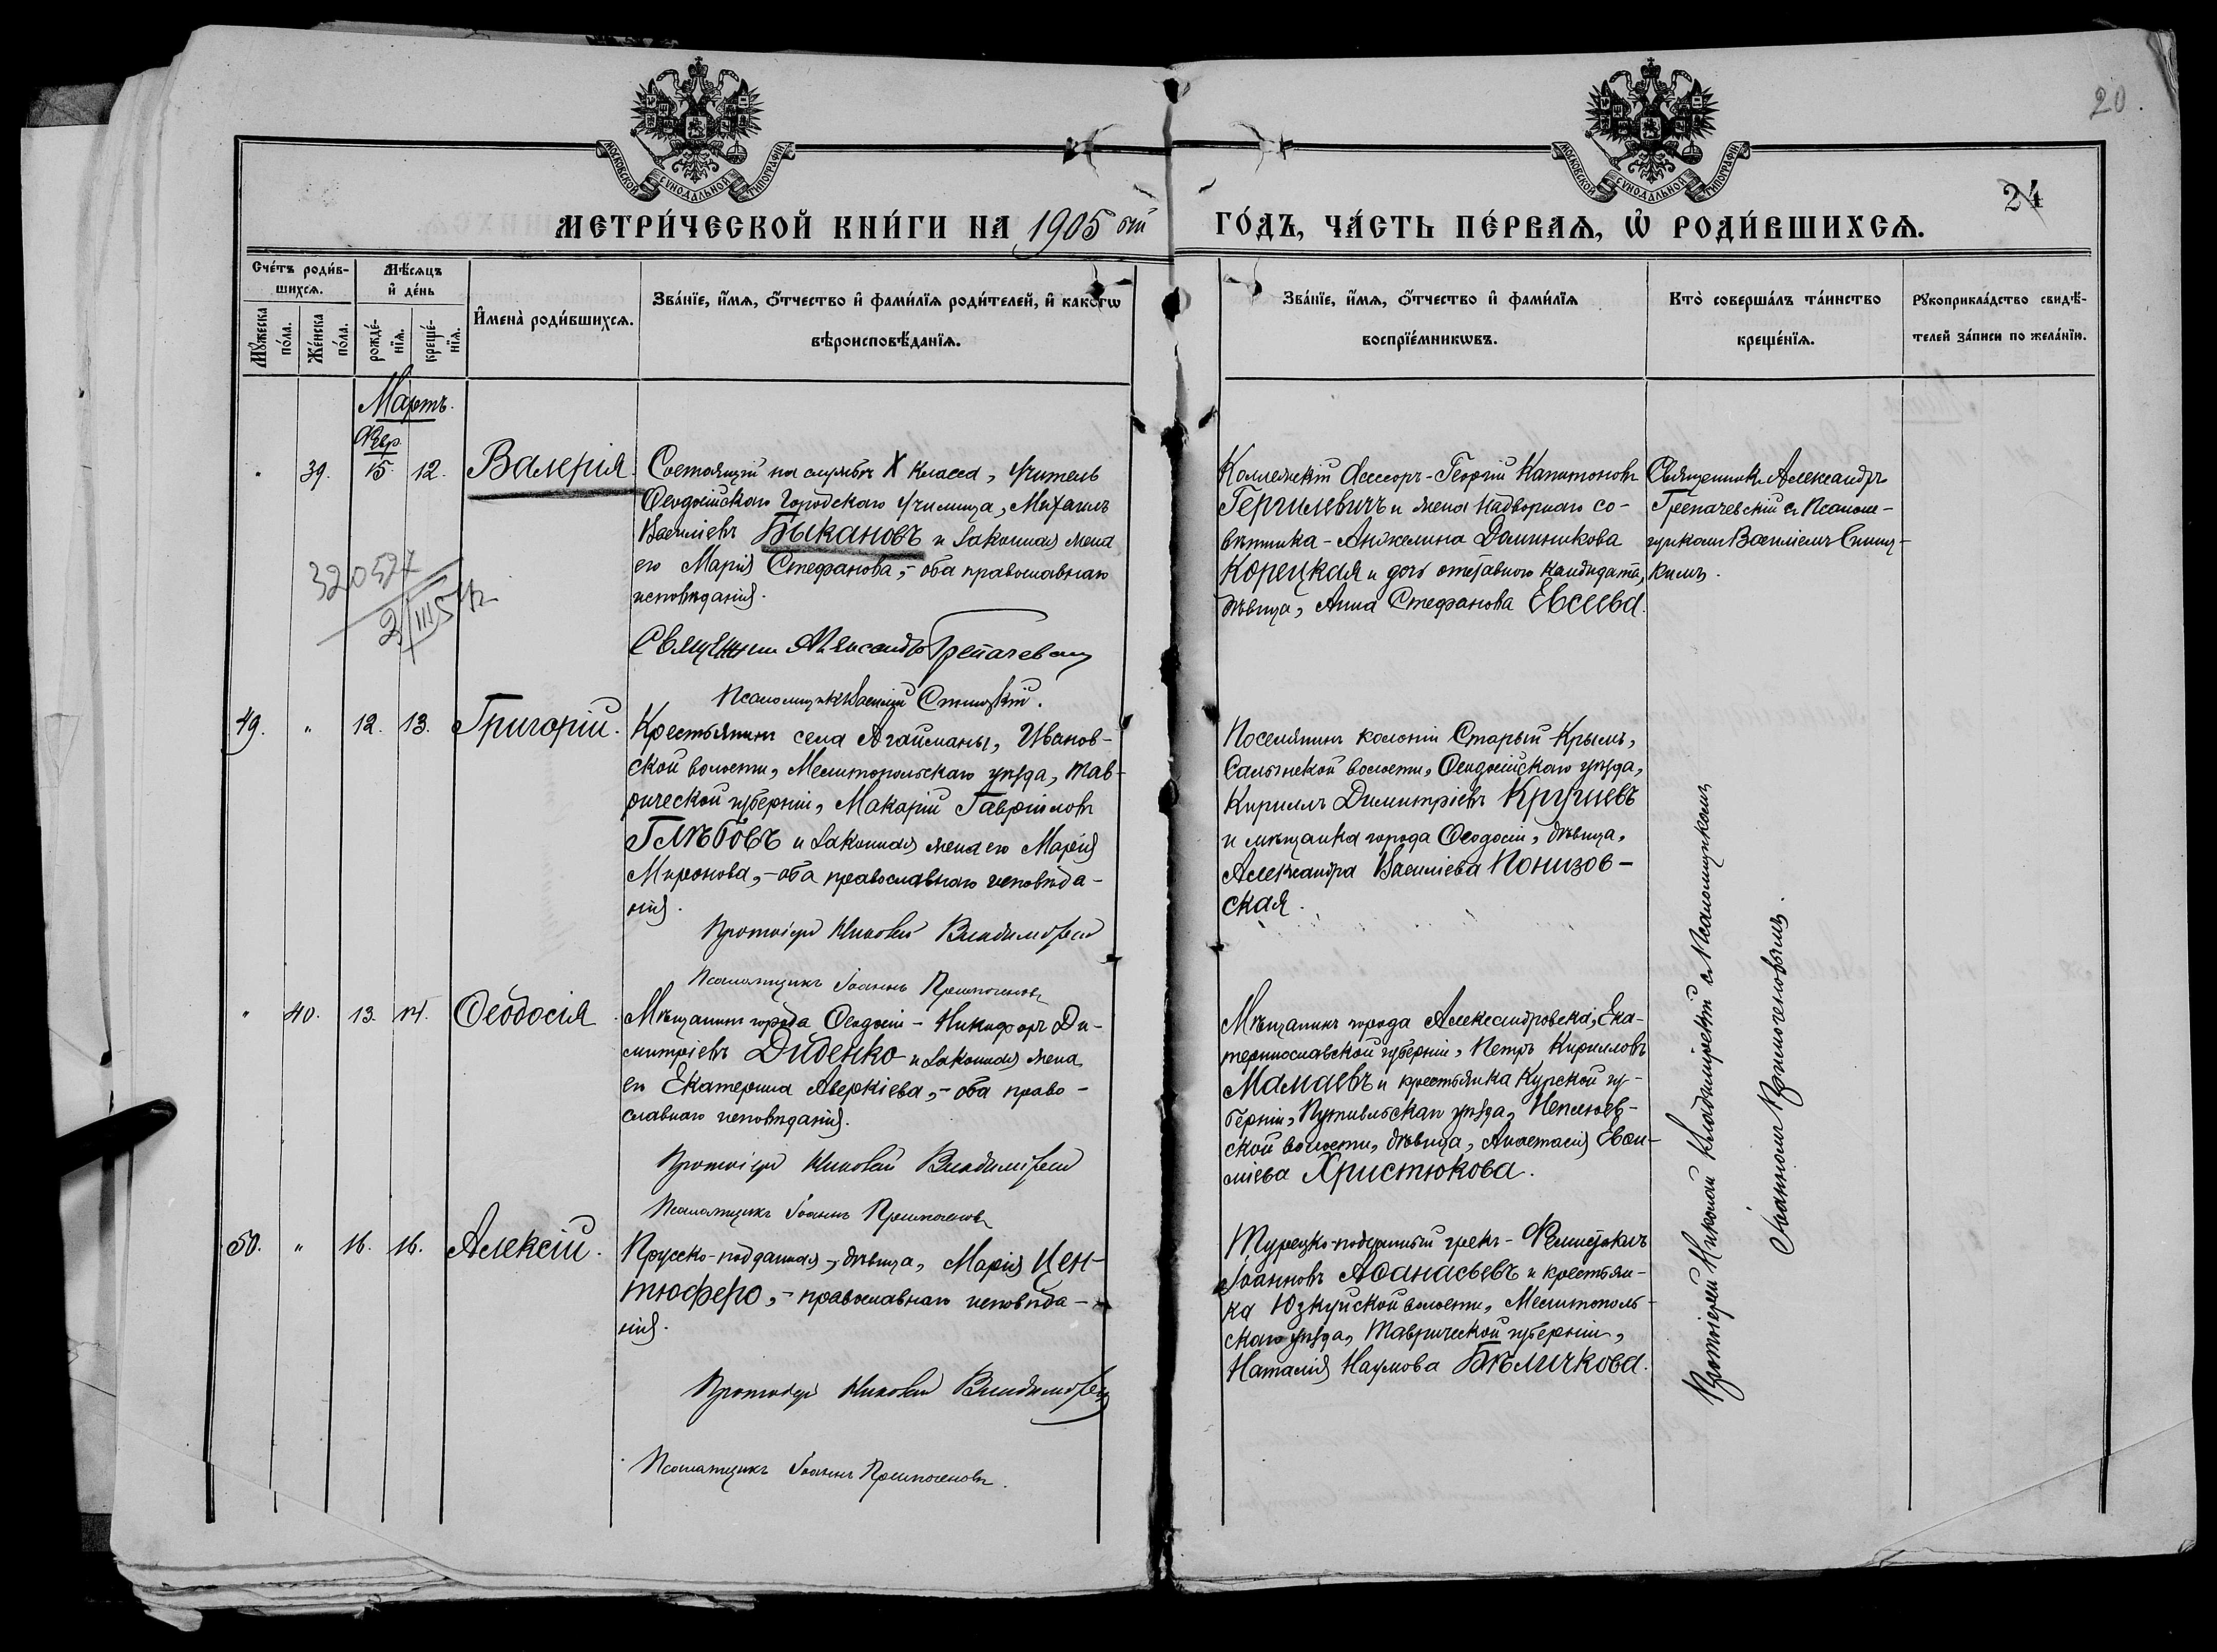 20.
МОСКОВСКОЙ СУНОДАЛЬНОЙ ТИПОГРАФІИ
МОСКОВСКОЙ СУНОДАЛЬНОЙ ТИПОГРАФІИ
24
МЕТРИ́ЧЕСКОЙ КНИ́ГИ НА 1905 ый ГО́ДЪ, ЧА́СТЬ ПЕ́РВАѦ, Ѡ҆ РОДИ́ВШИХСѦ.
Сче́тъ роди́в-
шихсѧ.
Мꙋ́жеска по́ла.
Же́нска по́ла.
Мѣ́сѧцъ
и҆ де́нь
рожде́-
нїѧ.
креще́-
нїѧ.
И҆мена̀ роди́вшихсѧ.
Зва́нїе, и҆́мѧ, ѻ҆́тчество и҆ фами́лїѧ роди́телей, и҆ како́гѡ
вѣроисповѣ́данїѧ.
Зва́нїе, и҆́мѧ, ѻ҆́тчество и҆ фами́лїѧ
воспрїе́мникѡвъ.
Кто̀ соверша́лъ та́инство
креще́нїѧ.
Рꙋкоприкла́дство свидѣ́-
телей за́писи по жела́нїю.
Мартъ.
Февр.
" 39. 15. 12. Валерія.
Состоящій на службѣ X класса, Учитель
Ѳеодосійскаго Городского Училища, Михаилъ
Василіевъ Быкановъ и законная жена
его Марія Стефанова,- оба православнаго
исповѣданія.
Священник Александръ Трепачевскій
Псаломщикъ Василій
Коллежскій Ассессоръ - Георгій Капитоновъ
Гергилевичъ и жена Надворнаго со-
вѣтника - Анжелина Доминикова
Корецкая и дочь отставного кандидата,
дѣвица, Анна Стефанова Евсеева.
Священникъ Александръ
Трепачевскій съ Псаломщ-
щикомъ Василіемъ
320527
49. " 12. 13. Григорій.
Крестьянинъ села Агайманы, Иванов-
ской волости, Мелитопольскаго уѣзда, Тав-
рической губерніи, Макарій Гавріиловъ
Глѣбовъ и законная жена его Марія
Миронова,- оба православнаго исповѣда-
нія.
Протоіерей Николай Владимірскій
Псаломщикъ Іоаннъ
Поселянинъ колоніи Старый Крымъ,
Салынской волости, Ѳеодосійскаго уѣзда,
Кириллъ Димитріевъ Кручіевъ
и мѣщанка города Ѳеодосіи, дѣвица,
Александра Василіева Понизов-
ская.
" 40. 13. 14. Ѳеодосія
Мѣщанинъ города Ѳеодосіи - Никифоръ Ди-
митріевъ Диденко и законная жена
его Екатерина Аверкіева,- оба право-
славнаго исповѣданія.
Протоіерей Николай Владимірскій
Псаломщикъ Іоаннъ
Мѣщанинъ города Александровска, Ека-
теринославской губерніи, Петръ Кирилловъ
Мамаевъ и крестьянка Курской гу-
берніи, Путивльскаго уѣзда, Неплюев-
ской волости, дѣвица, Анастасія Васи-
ліева Христюкова.
50. " 16. 16. Алексій.
Прусско-подданная, дѣвица, Марія Цен-
тюферо,- православнаго исповѣда-
нія.
Протоіерей Николай Владимірскій
Псаломщикъ Іоаннъ
Турецко-подданный грекъ -
Іоанновъ Аѳанасьевъ и крестьян-
ка Юзкуйской волости, Мелитополь-
скаго уѣзда, Таврической губерніи,
Наталія Наумова Бѣличкова.
Протоіерей Николай Владимірскій съ Псаломщикомъ
Іоанномъ